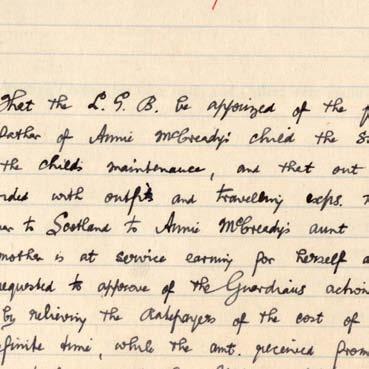 That the L. G. B. be apprized of the
father of Annie McCready's child the
the child's maintenance, and that out
with outfits and travelling exps.
to Scotland to Annie McCready's aunt
mother is at service earning for herself
requested to approve of the Guardians action
by relieving the Ratepayers of the cost of
time, while the amt. received from